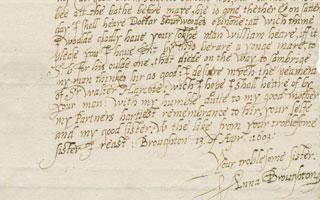 bee att the bathe before mate. she is one thether & on satter
day. I shall heave Doctar opinone: att wich thinke
I woulde gladly have your man william heare, if it
please you. I have this berare a yonge mare, to
for his oulde one, that died on the way to cambrige
my man thinks hir as good: I desiere my the
of Sr walter Harcote: wich I hope I shall heare of by
your man: with my humble dutie to my good mother
my Partners hartiest remembrance to hir, your selfe
and my good sister, & the like from your troblesome
sister I rest: Broughton 13 of Apr. 1603:
Your troblesome sister.
Anna Broughton